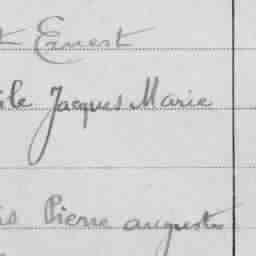 t Ernest
ile Jacques Marie
is Pierre auguste